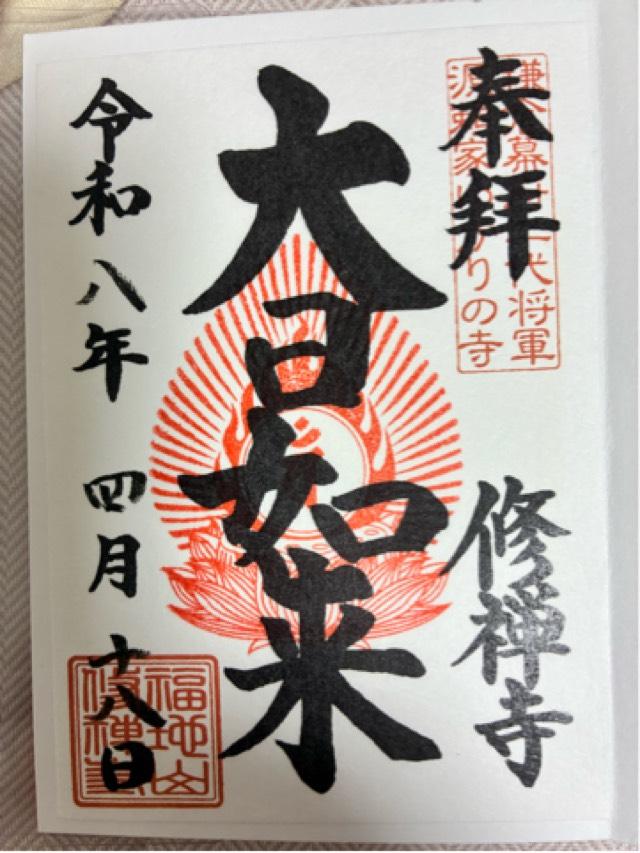 奉拝
鎌倉幕府二代将軍
源頼家ゆかりの寺
修禅寺
大日如来
令和八年 四月 十八日
福地山
修禅寺